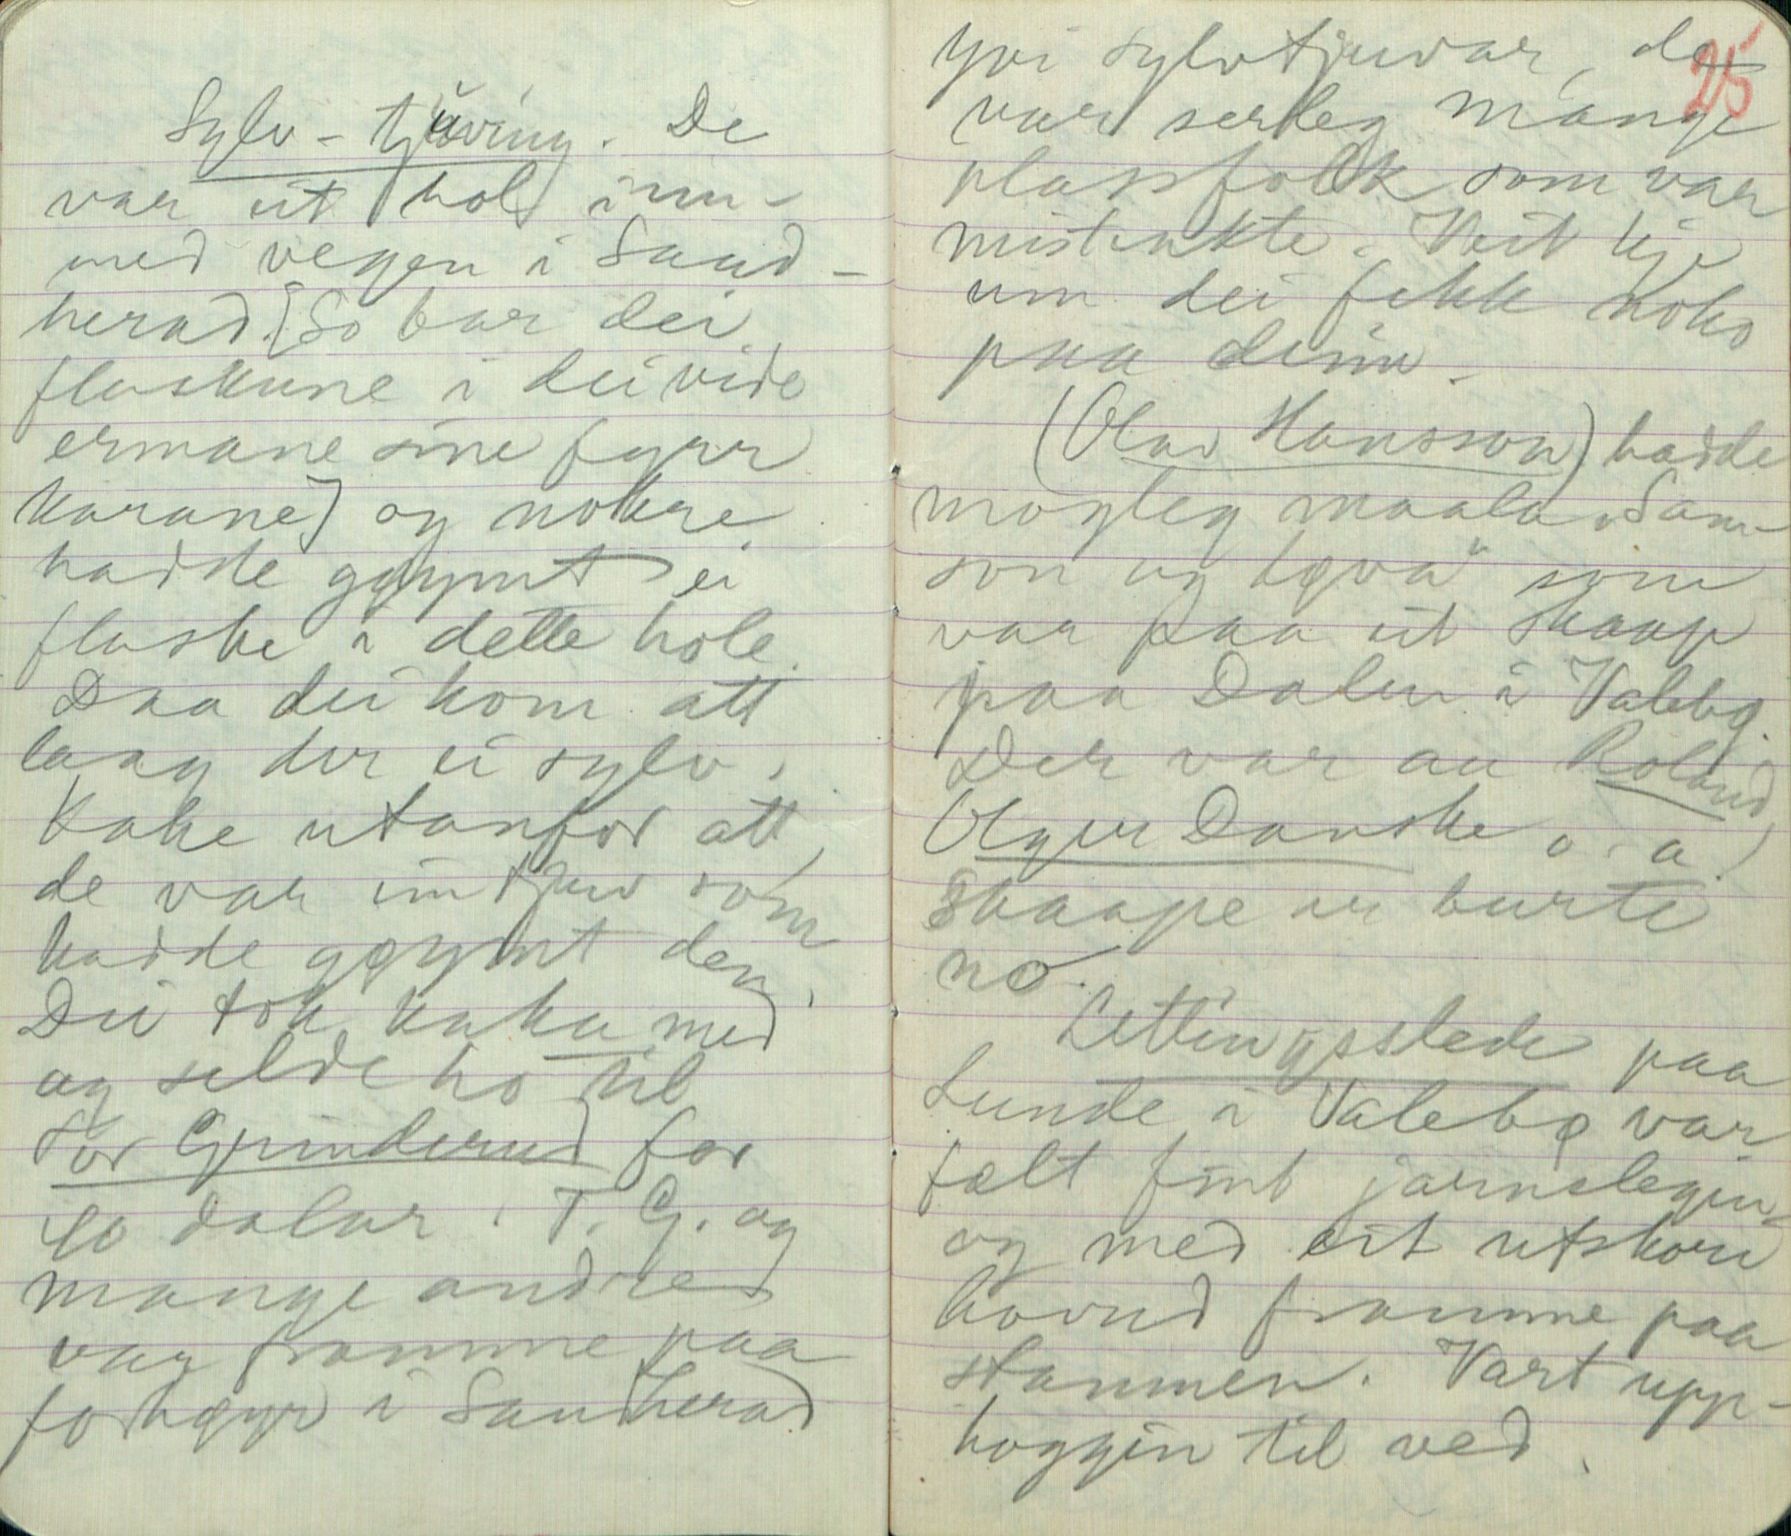 Sylv-tjuving. De
var eit hol inn-
med vegen i Saud-
herad. [So bar dei
flaskune i dei vide
ermane sine fyrr
karane] og nokre
hadde gøymt ei
flaske i dette hole.
Daa dei kom att
laag der ei sylv-
kake utanfor att,
de var ein tjuv som
hadde gøymt den,
Dei tok kaka med
og selde ho til
Tor Grinderud for
40 dalar. T. G. og
mange andre
var framme paa
forhøyr i Sauherad
25
yvi sylvtjuvar, de
var serleg mange
plassfolk som var
mistenkte. Veit kje
um dei fekk noko
paa deim.
(Olav Hansson) hadde
mogleg maala "Sam-
son og løva" som
var paa eit skaap
paa Dalen i Valebø.
Der var au Roland,
Olger Danske o. a.
Skaape er burte
no.
Lettingsslede paa
Lunde i Valebø var
følt fint jarnslegin
og med eit utskore
hovud framme paa
stammen. Vart upp-
hoggin til ved.